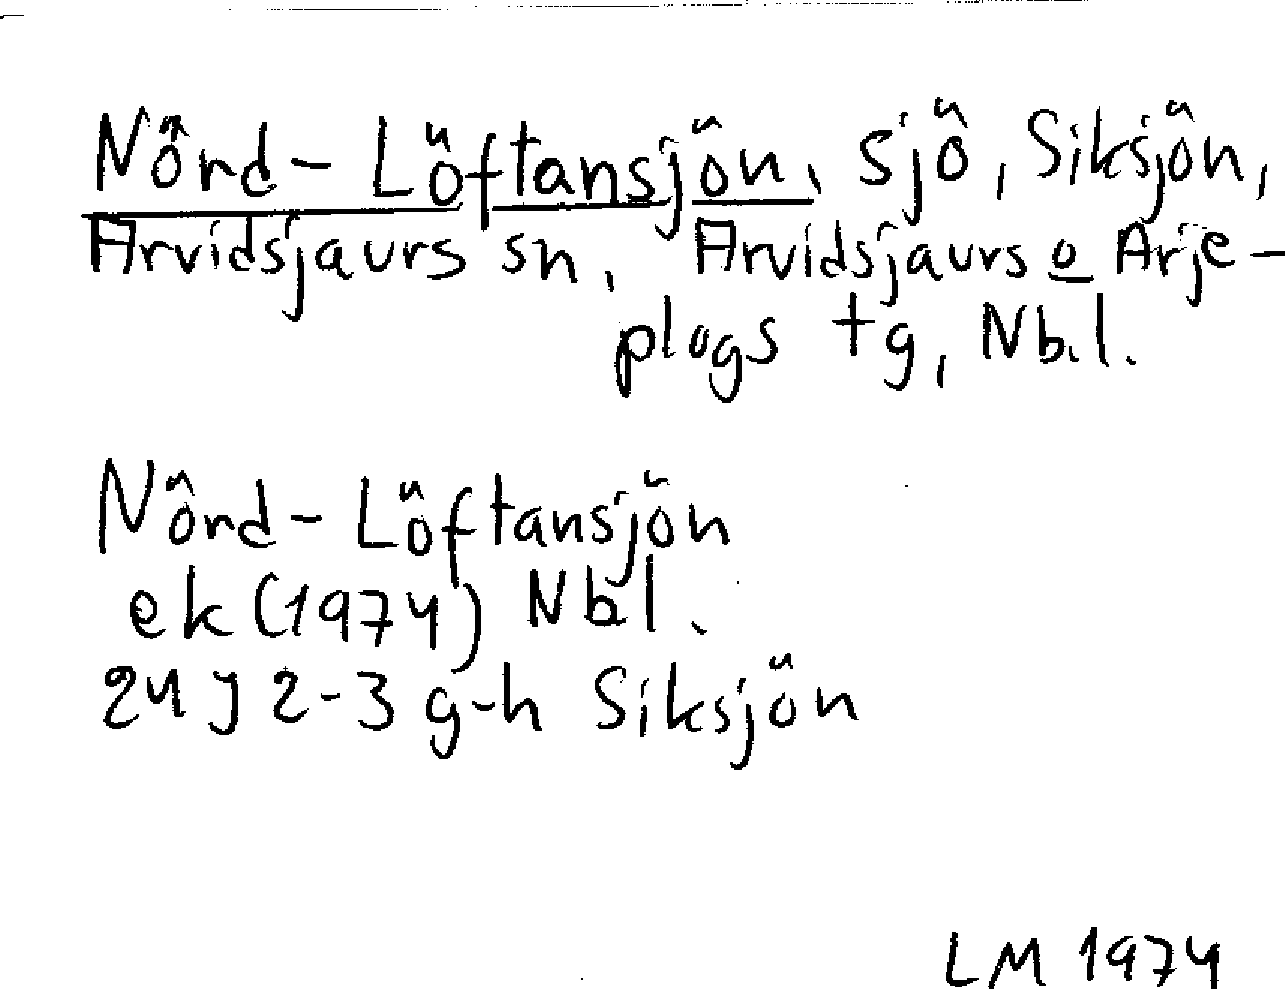 Nörd-Löftansjön, sjö, Siksjön,
Arvidsjaurs sn, Arvidsjaurs o Arje-
plogs tg, Nb.l.
Nörd-Löftansjön
ek (1974) Nb l.
24 J 2-3 g-h Siksjön
LM 1974